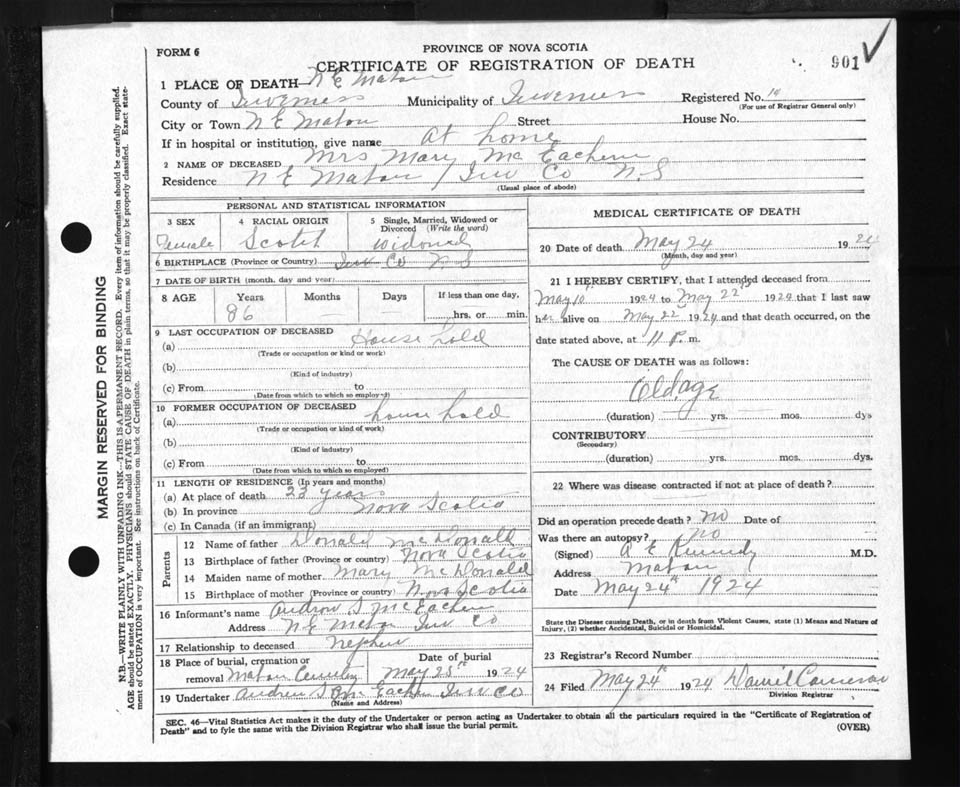 FORM 6
PROVINCE OF NOVA SCOTIA
CERTIFICATE OF REGISTRATION OF DEATH
901
1 PLACE OF DEATH—N E Mabou
County of Inverness Municipality of Inverness Registered No. 10
(For use of Registrar General only)
City or Town N E Mabou Street House No.
If in hospital or institution, give name At home
2 NAME OF DECEASED Mrs Mary McEachern
Residence N E Mabou / Inv Co N.S
(Usual place of abode)
PERSONAL AND STATISTICAL INFORMATION
3 SEX
Female
4 RACIAL ORIGIN
Scotch
5 Single, Married, Widowed or Divorced (Write the word)
Widowed
6 BIRTHPLACE (Province or Country) Inv Co N S
7 DATE OF BIRTH (month, day and year)
8 AGE Years Months Days If less than one day,
86 — — hrs. or min.
9 LAST OCCUPATION OF DECEASED
(a) House hold
(Trade or occupation or kind or work)
(b)
(Kind of industry)
(c) From to
(Date from which to which so employed)
10 FORMER OCCUPATION OF DECEASED
(a) house hold
(Trade or occupation or kind of work)
(b)
(Kind of industry)
(c) From to
(Date from which to which so employed)
11 LENGTH OF RESIDENCE (In years and months)
(a) At place of death 23 years
(b) In province Nova Scotia
(c) In Canada (if an immigrant)
Parents
12 Name of father Donald McDonald
13 Birthplace of father (Province or country) Nova Scotia
14 Maiden name of mother Mary McDonald
15 Birthplace of mother (Province or country) Nova Scotia
16 Informant's name Andrew S McEachern
Address N E Mabou Inv Co
17 Relationship to deceased Nephew
18 Place of burial, cremation or removal Mabou Cemetery
Date of burial May 25th 1924
19 Undertaker Andrew S McEachern Inv Co
(Name and Address)
MEDICAL CERTIFICATE OF DEATH
20 Date of death May 24 1924
(Month, day and year)
21 I HEREBY CERTIFY, that I attended deceased from
May 10th 1924 to May 22nd 1924 that I last saw
her alive on May 22 1924 and that death occurred, on the
date stated above, at 11 P. m.
The CAUSE OF DEATH was as follows:
Old age
(duration) yrs. mos. dys
CONTRIBUTORY
(Secondary)
(duration) yrs. mos. dys.
22 Where was disease contracted if not at place of death?
Did an operation precede death? no Date of
Was there an autopsy? no
(Signed) A E Kennedy M.D.
Address Mabou
Date May 24th 1924
State the Disease causing Death, or in death from Violent Causes, state (1) Means and Nature of
Injury, (2) whether Accidental, Suicidal or Homicidal.
23 Registrar's Record Number
24 Filed May 24th 1924 Daniel Cameron
Division Registrar
SEC. 46—Vital Statistics Act makes it the duty of the Undertaker or person acting as Undertaker to obtain all the particulars required in the "Certificate of Registration of
Death" and to fyle the same with the Division Registrar who shall issue the burial permit.
(OVER)
MARGIN RESERVED FOR BINDING
N.B.—WRITE PLAINLY WITH UNFADING INK—THIS IS A PERMANENT RECORD. Every item of information should be carefully supplied.
AGE should be stated EXACTLY. PHYSICIANS should STATE CAUSE OF DEATH in plain terms, so that it may be properly classified. Exact state-
ment of OCCUPATION is very important. See instructions on back of Certificate.